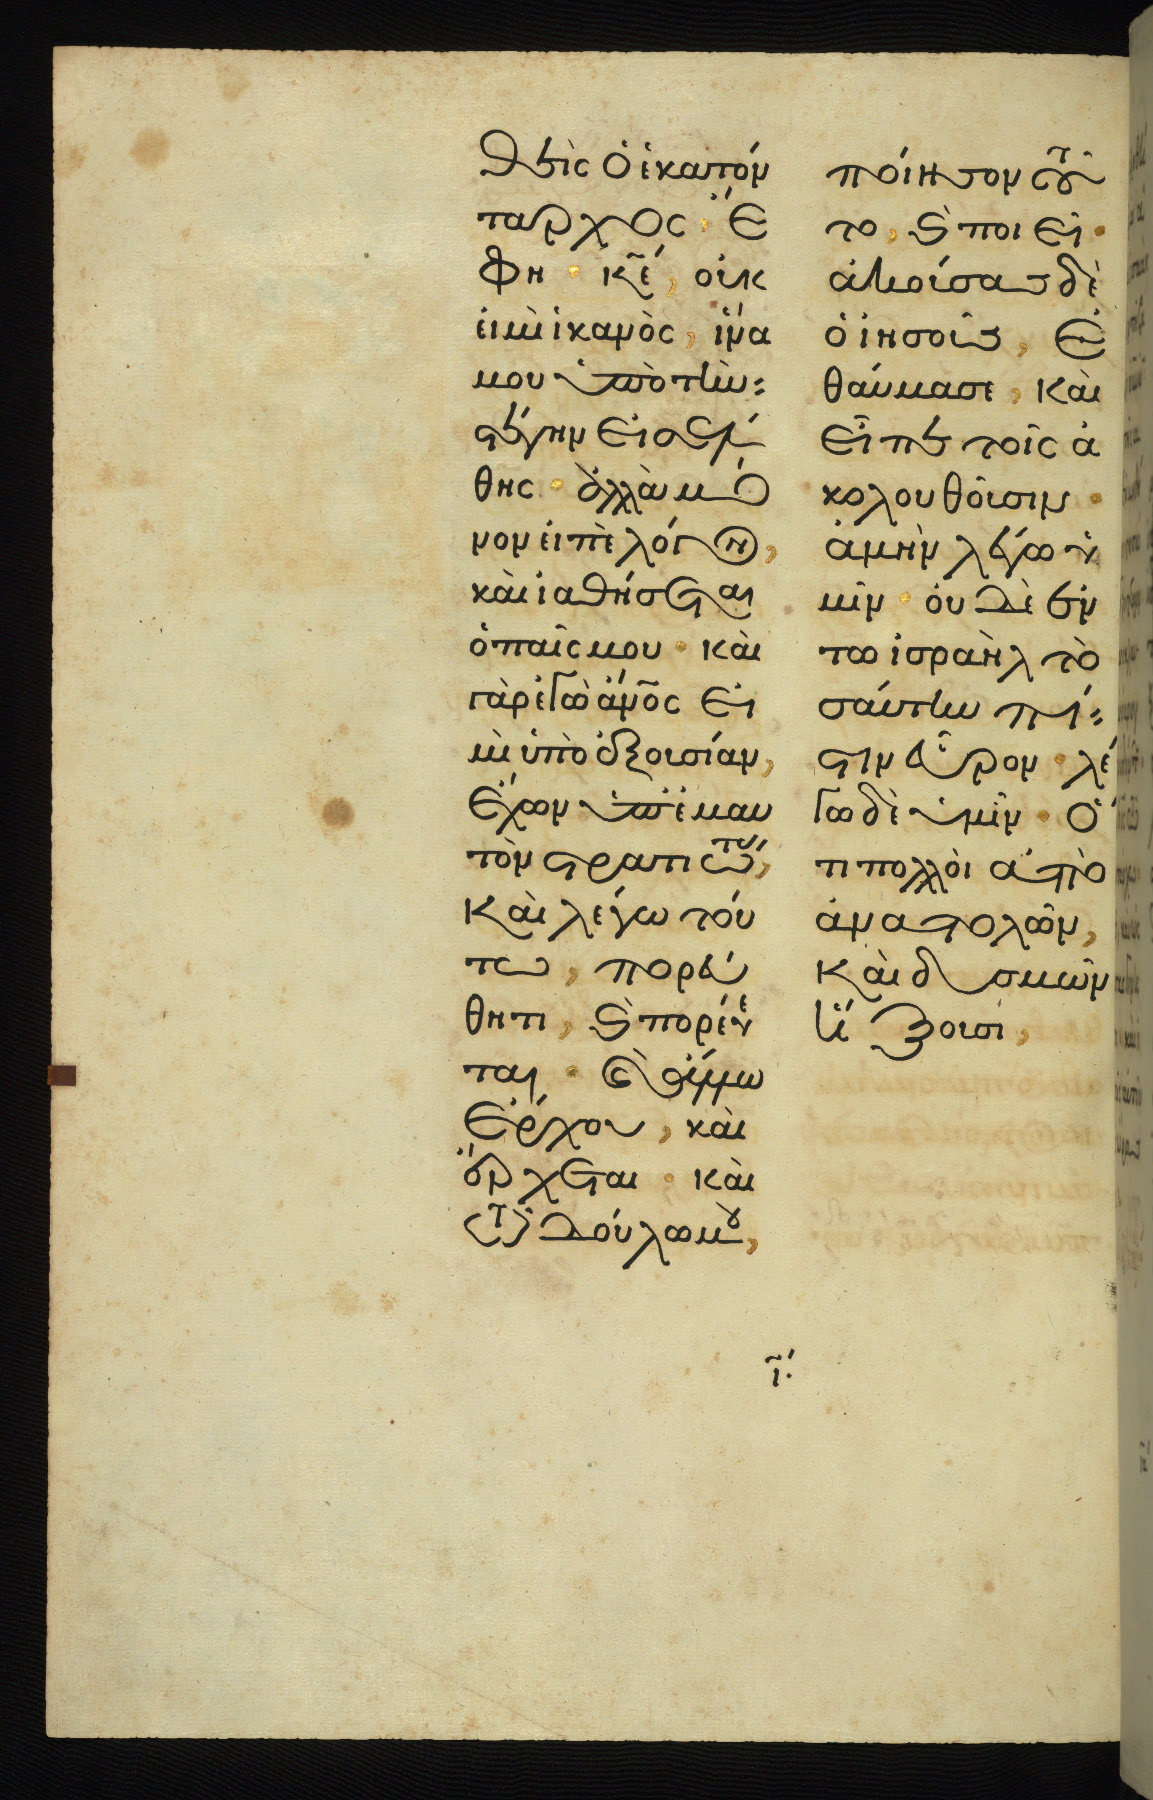 θεὶς ὁ ἑκατόν
ταρχος· ἔ
φη· κ̅ε̅, οὐκ
εἰμὶ ἱκανὸς, ἵνα
μου ὑπὸ τὴν
στέγην εἰσέλ
θης· ἀλλὰ μό
νον εἰπὲ λόγον,
καὶ ἰαθήσεται
ὁ παῖς μου· καὶ
γὰρ ἐγὼ ἄνος εἰ
μὶ ὑπὸ ἐξουσίαν,
ἔχων ὑπ' ἐμαυ
τὸν στρατιώτ,
καὶ λέγω τού
τω, πορεύ
θητι, καὶ πορεύε
ται· καὶ ἄλλω
ἔρχου, καὶ
ἔρχεται· καὶ
τῶ δούλω μου,
ποίησον τοῦ
το, καὶ ποιεῖ·
ἀκούσας δὲ
ὁ ἰησοῦς, ἐ
θαύμασε, καὶ
εἶπε τοῖς ἀ
κολουθοῦσιν·
ἀμὴν λέγω ὑ
μῖν· οὐδὲ ἐν
τῶ ἰσραὴλ το
σαύτην πί
στιν εὗρον· λέ
γω δὲ ὑμῖν· ὅ
τι πολλοὶ ἀπὸ
ἀνατολῶν,
καὶ δυσμῶν
ἥξουσι,
ι̅·